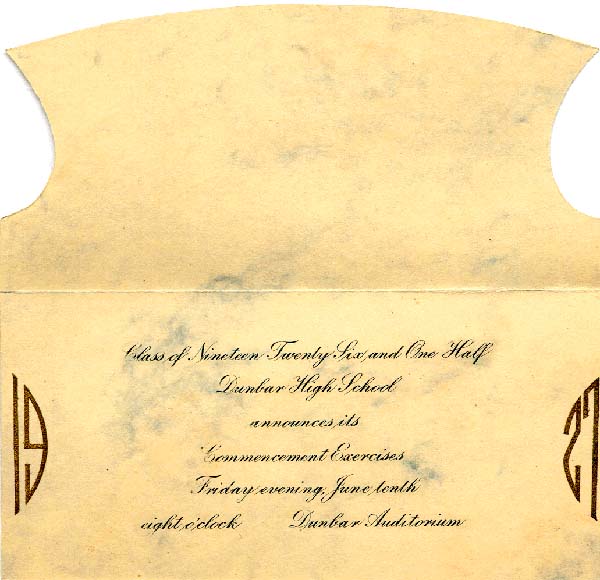 Class of Nineteen Twenty Six and One Half
Dunbar High School
announces its
Commencement Exercises
19
27
Friday evening, June tenth
eight o'clock Dunbar Auditorium